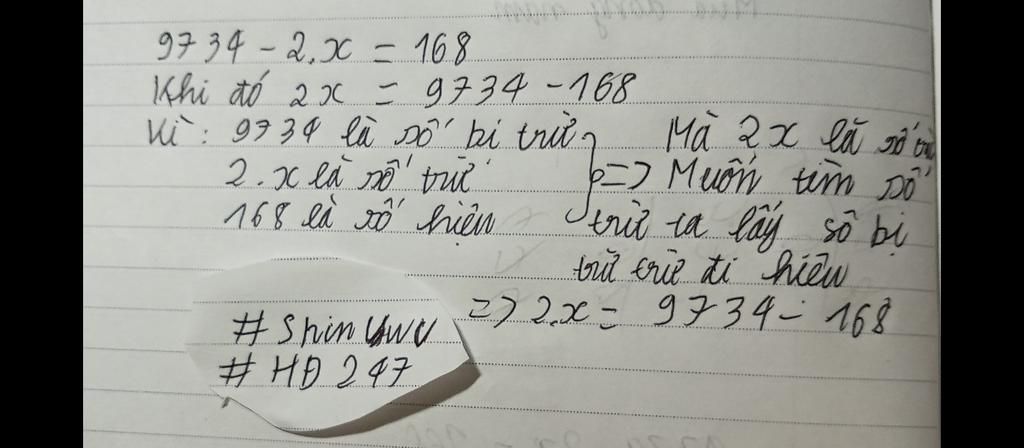 9734 - 2.x = 168
Khi đó 2x = 9734 - 168
Vì: 9734 là số bị trừ
2.x là số trừ
168 là số hiệu
} => Mà 2x là số trừ
Muốn tìm số
trừ ta lấy số bị
trừ trừ đi hiệu
=> 2.x = 9734 - 168
# Shin Uwu
# HD 247